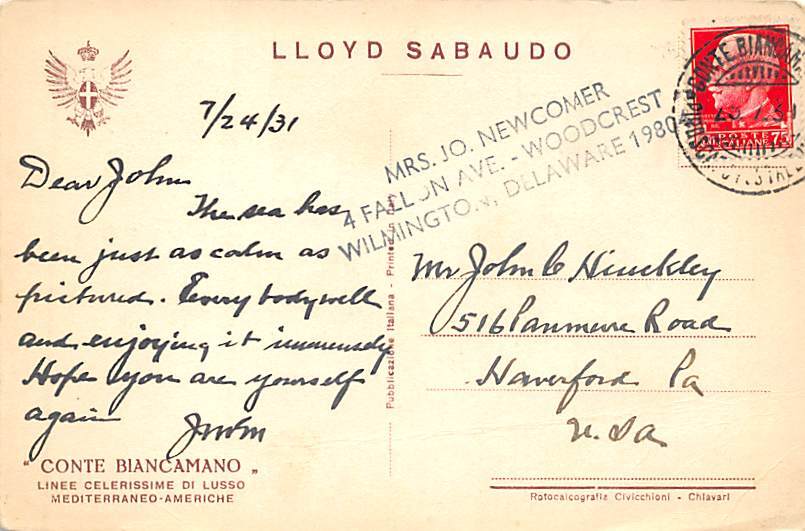 LLOYD SABAUDO
7/24/31
Dear John
The sea has
been just as calm as
pictured. Every body well
and enjoying it immensely
Hope you are yourself
again
"CONTE BIANCAMANO"
LINEE CELERISSIME DI LUSSO
MEDITERRANEO-AMERICHE
Pubblicazione Italiana - Printed in
MRS. JO. NEWCOMER
4 FALLON AVE. - WOODCREST
WILMINGTON, DELAWARE 1980
CONTE BIANCAM
POSTE
75
ITALIANE
Mr John C Hinckley
516 Panmure Road
Haverford Pa
U.S.A
Rotocalcografia Civicchioni - Chiavari